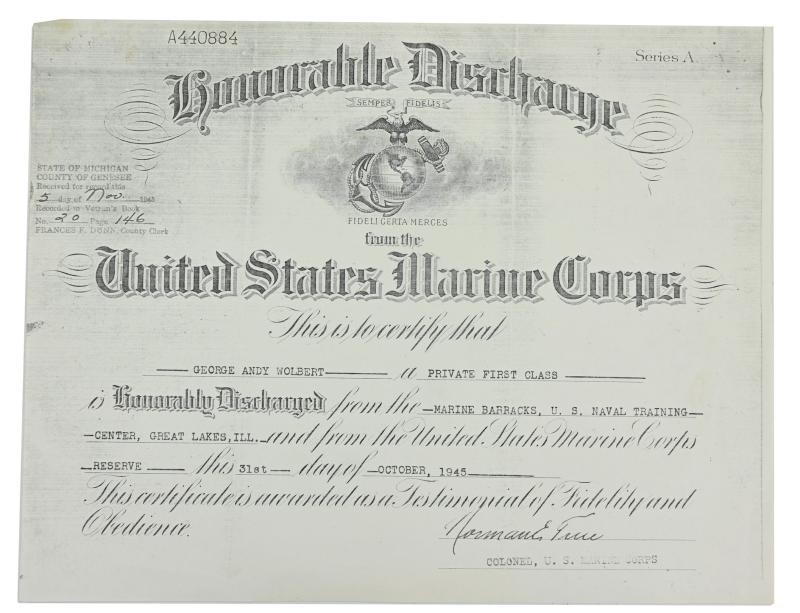 A440884
Series A
Honorable Discharge
SEMPER FIDELIS
FIDELI CERTA MERCES
STATE OF MICHIGAN
COUNTY OF GENESEE
Received for record this
5 day of Nov. 1945
Recorded in Vetran's Book
No. 20 Page 146
FRANCES F. DUNN, County Clerk
from the
United States Marine Corps
This is to certify that
GEORGE ANDY WOLBERT a PRIVATE FIRST CLASS
is Honorably Discharged from the MARINE BARRACKS, U. S. NAVAL TRAINING
CENTER, GREAT LAKES, ILL. and from the United States Marine Corps
RESERVE this 31st day of OCTOBER, 1945
This certificate is awarded as a Testimonial of Fidelity and
Obedience.
Norman E. True
COLONEL, U. S. MARINE CORPS